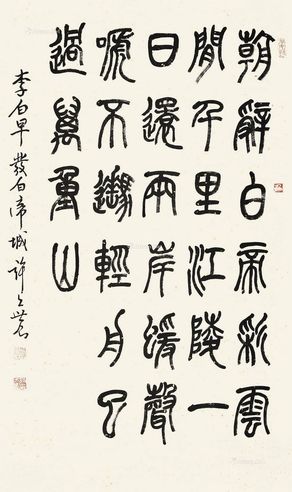 朝辭白帝彩雲
閒千里江陵一
日還兩岸猨聲
嗁不輕舟已
過萬重山
李白早發白帝城